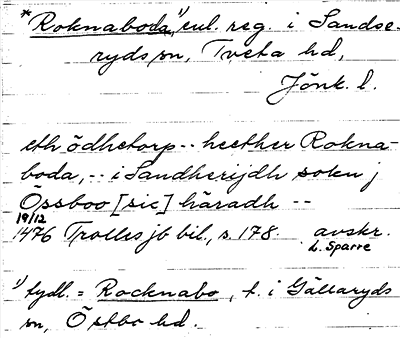 *Roknaboda,¹⁾ enl. reg. i Sandse-
ryds sn, Tveta hd,
Jönk. l.
eth ödhetorp -- heether Rokna-
boda, -- i Sandherijdh soken j
Össboo [sic] häradh --
19/12
1476 Trolles jb bil., s. 178. avskr.
L. Sparre
¹⁾ tydl. = Rocknabo, t. i Gällaryds
sn, Östbo hd.